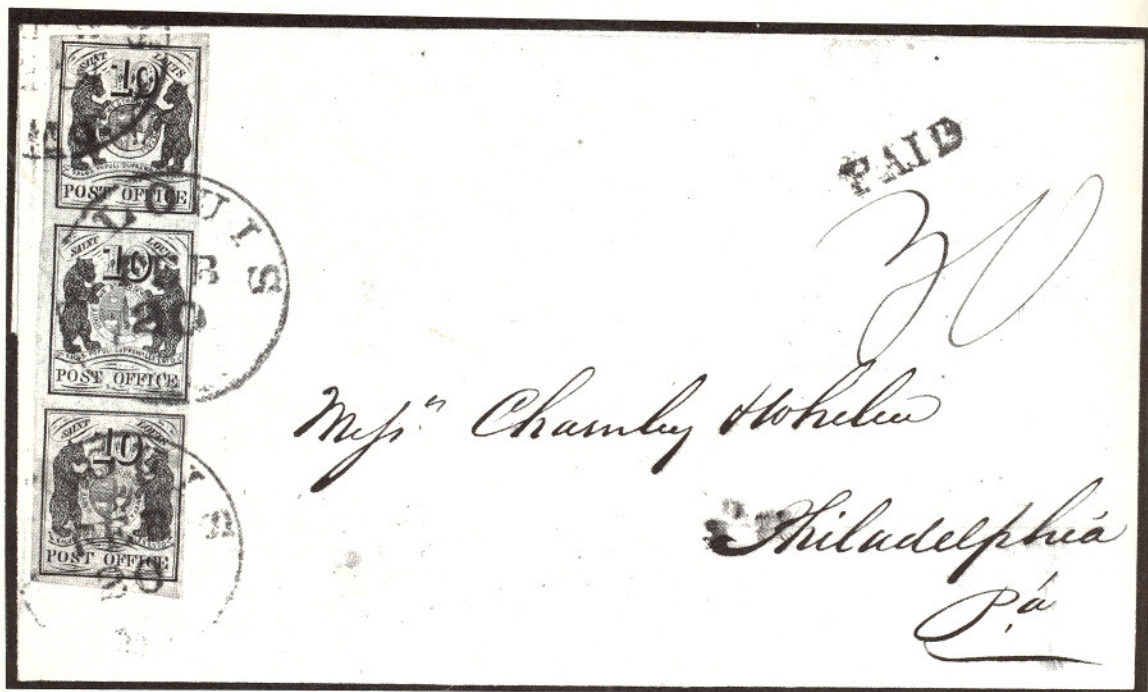 SAINT LOUIS
10
POST OFFICE
SAINT LOUIS
10
POST OFFICE
SAINT LOUIS
10
POST OFFICE
LOUIS
20
20
PAID
30
Messrs Charnley & Whelen
Philadelphia
Pa